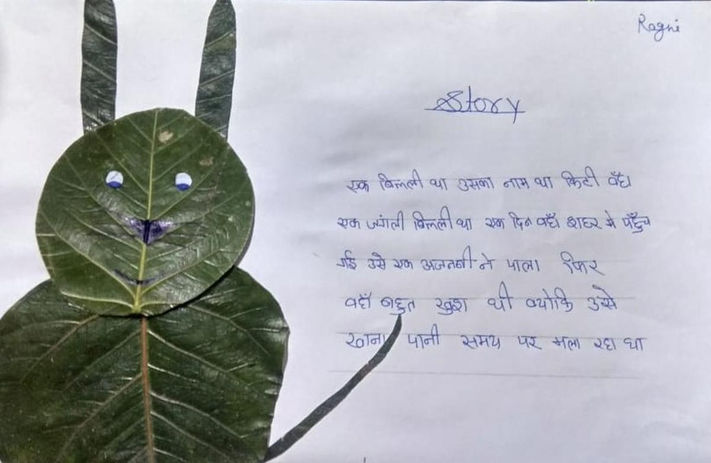 Ragni
Story
एक बिल्ली था उसका नाम था किटी वहँ
एक जगंली बिल्ली था एक दिन वहँ शहर मे पहुँच
गई उसे एक अजतनी ने पाला फिर
वहँ बहुत खुश थी क्योकि उसे
खाना पानी समय पर मला रहा था